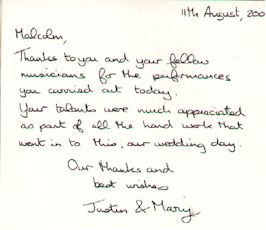 11th August, 200
Malcolm,
Thanks to you and your fellow
musicians for the performances
you carried out today.
Your talents were much appreciated
as part of all the hard work that
went in to this, our wedding day.
Our thanks and
best wishes
Justin & Mary